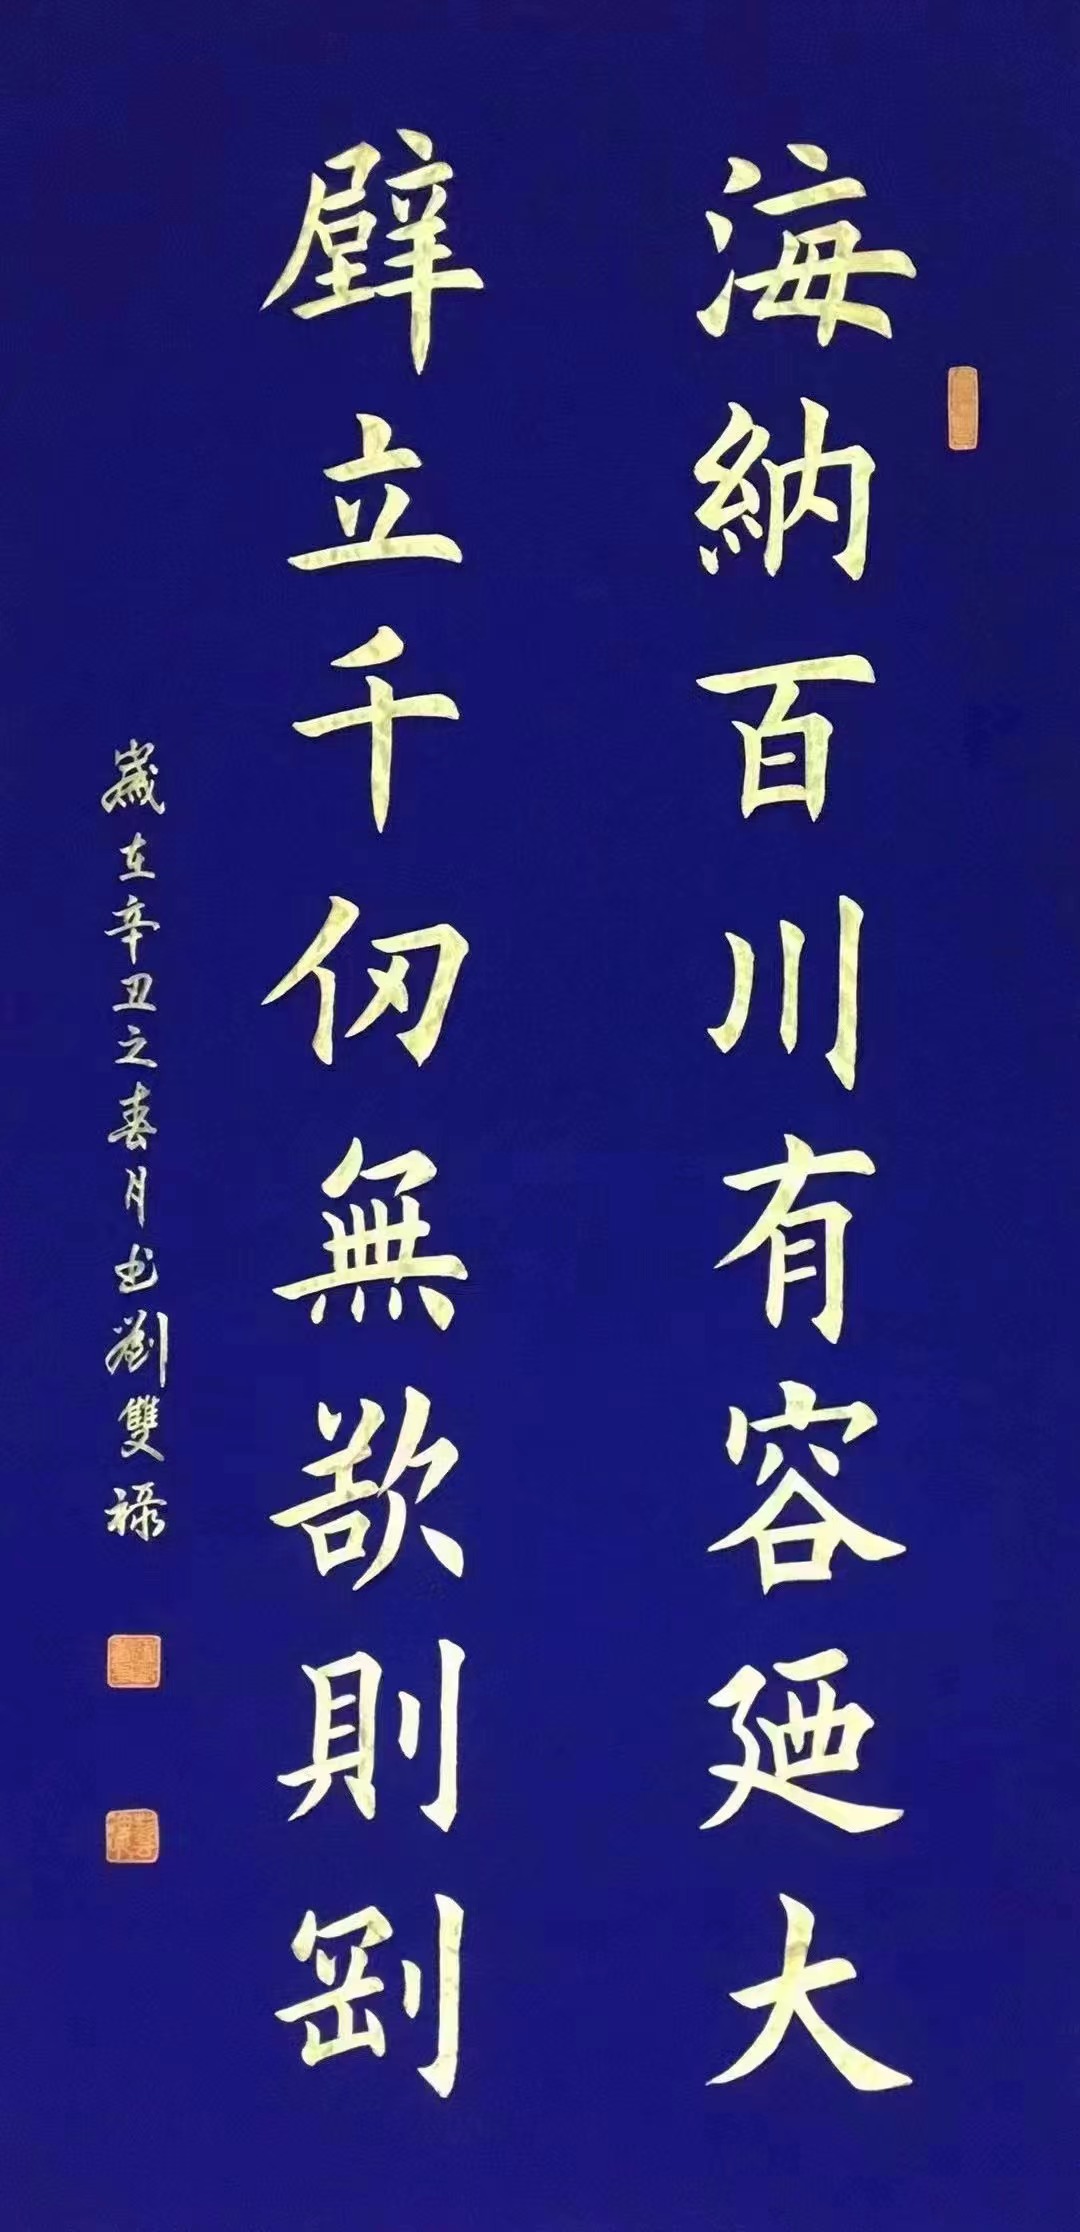 海納百川有容廼大
壁立千仞無欲則剛
歲在辛丑之春月书劉雙禄